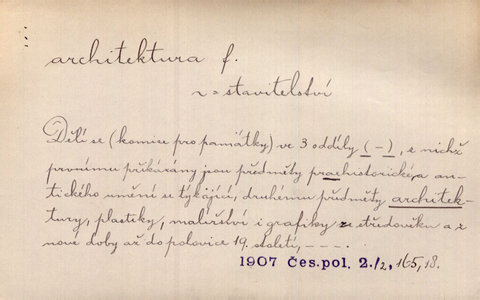 architektura f.
~ = stavitelství
Dělí se (komise pro památky) ve 3 oddíly (–), z nichž
prvnímu přikázány jsou předměty praehistorické a an-
tického umění se týkající, druhému předměty architek-
tury, plastiky, malířství i grafiky ze středověku a z
nové doby až do polovice 19. století, – – – .
1907 Čes. pol. 2./2, 165, 18.